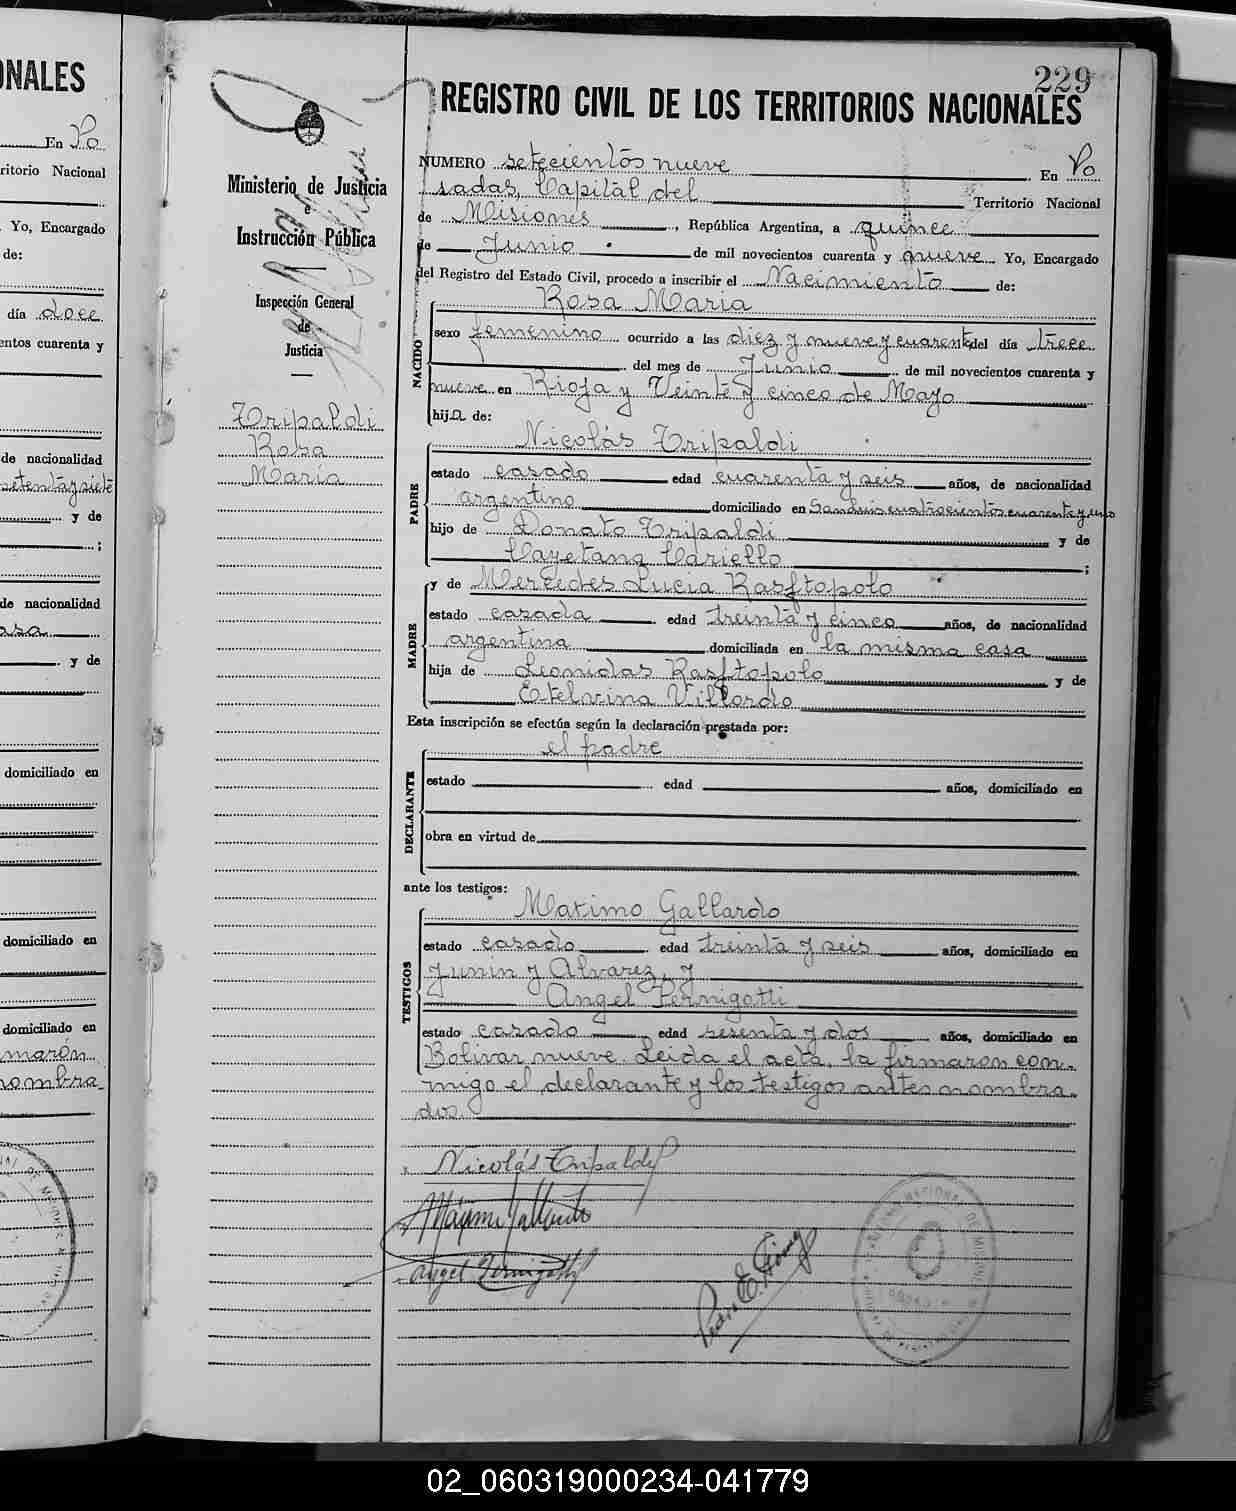 ONALES
En Po
ritorio Nacional
. Yo, Encargado
de:
día doce
entos cuarenta y
de nacionalidad
setenta y siete
y de
;
de nacionalidad
asa
y de
domiciliado en
domiciliado en
domiciliado en
maron
nombra
229
Ministerio de Justicia
e
Instrucción Pública
Inspección General
de
Justicia
Tripaldi
Rosa
María
REGISTRO CIVIL DE LOS TERRITORIOS NACIONALES
NUMERO setecientos nueve. En Po
sadas, Capital del Territorio Nacional
de Misiones, República Argentina, a quince
de Junio de mil novecientos cuarenta y nueve. Yo, Encargado
del Registro del Estado Civil, procedo a inscribir el Nacimiento de:
Rosa María
NACIDO
sexo femenino ocurrido a las diez y nueve y cuarenta del día trece
del mes de Junio de mil novecientos cuarenta y
nueve en Rioja y Veinte y cinco de Mayo
hija de:
Nicolás Tripaldi
PADRE
estado casado edad cuarenta y seis años, de nacionalidad
argentino domiciliado en San Luis cuatrocientos cuarenta y uno
hijo de Donato Tripaldi y de
Cayetana Cariello;
MADRE
y de Mercedes Lucia Rasftopolo
estado casada edad treinta y cinco años, de nacionalidad
argentina domiciliada en la misma casa
hija de Leonidas Rasftopolo y de
Etelvina Villordo
Esta inscripción se efectúa según la declaración prestada por:
el padre
DECLARANTE
estado edad años, domiciliado en
obra en virtud de
ante los testigos:
Maximo Gallardo
TESTIGOS
estado casado edad treinta y seis años, domiciliado en
Junin y Alvarez, y
Angel Pernigotti
estado casado edad sesenta y dos años, domiciliado en
Bolivar nueve. Leida el acta, la firmaron con-
migo el declarante y los testigos antes nombra-
dos.
Nicolás Tripaldi
Máximo Gallardo
Angel Pernigotti
02_060319000234-041779